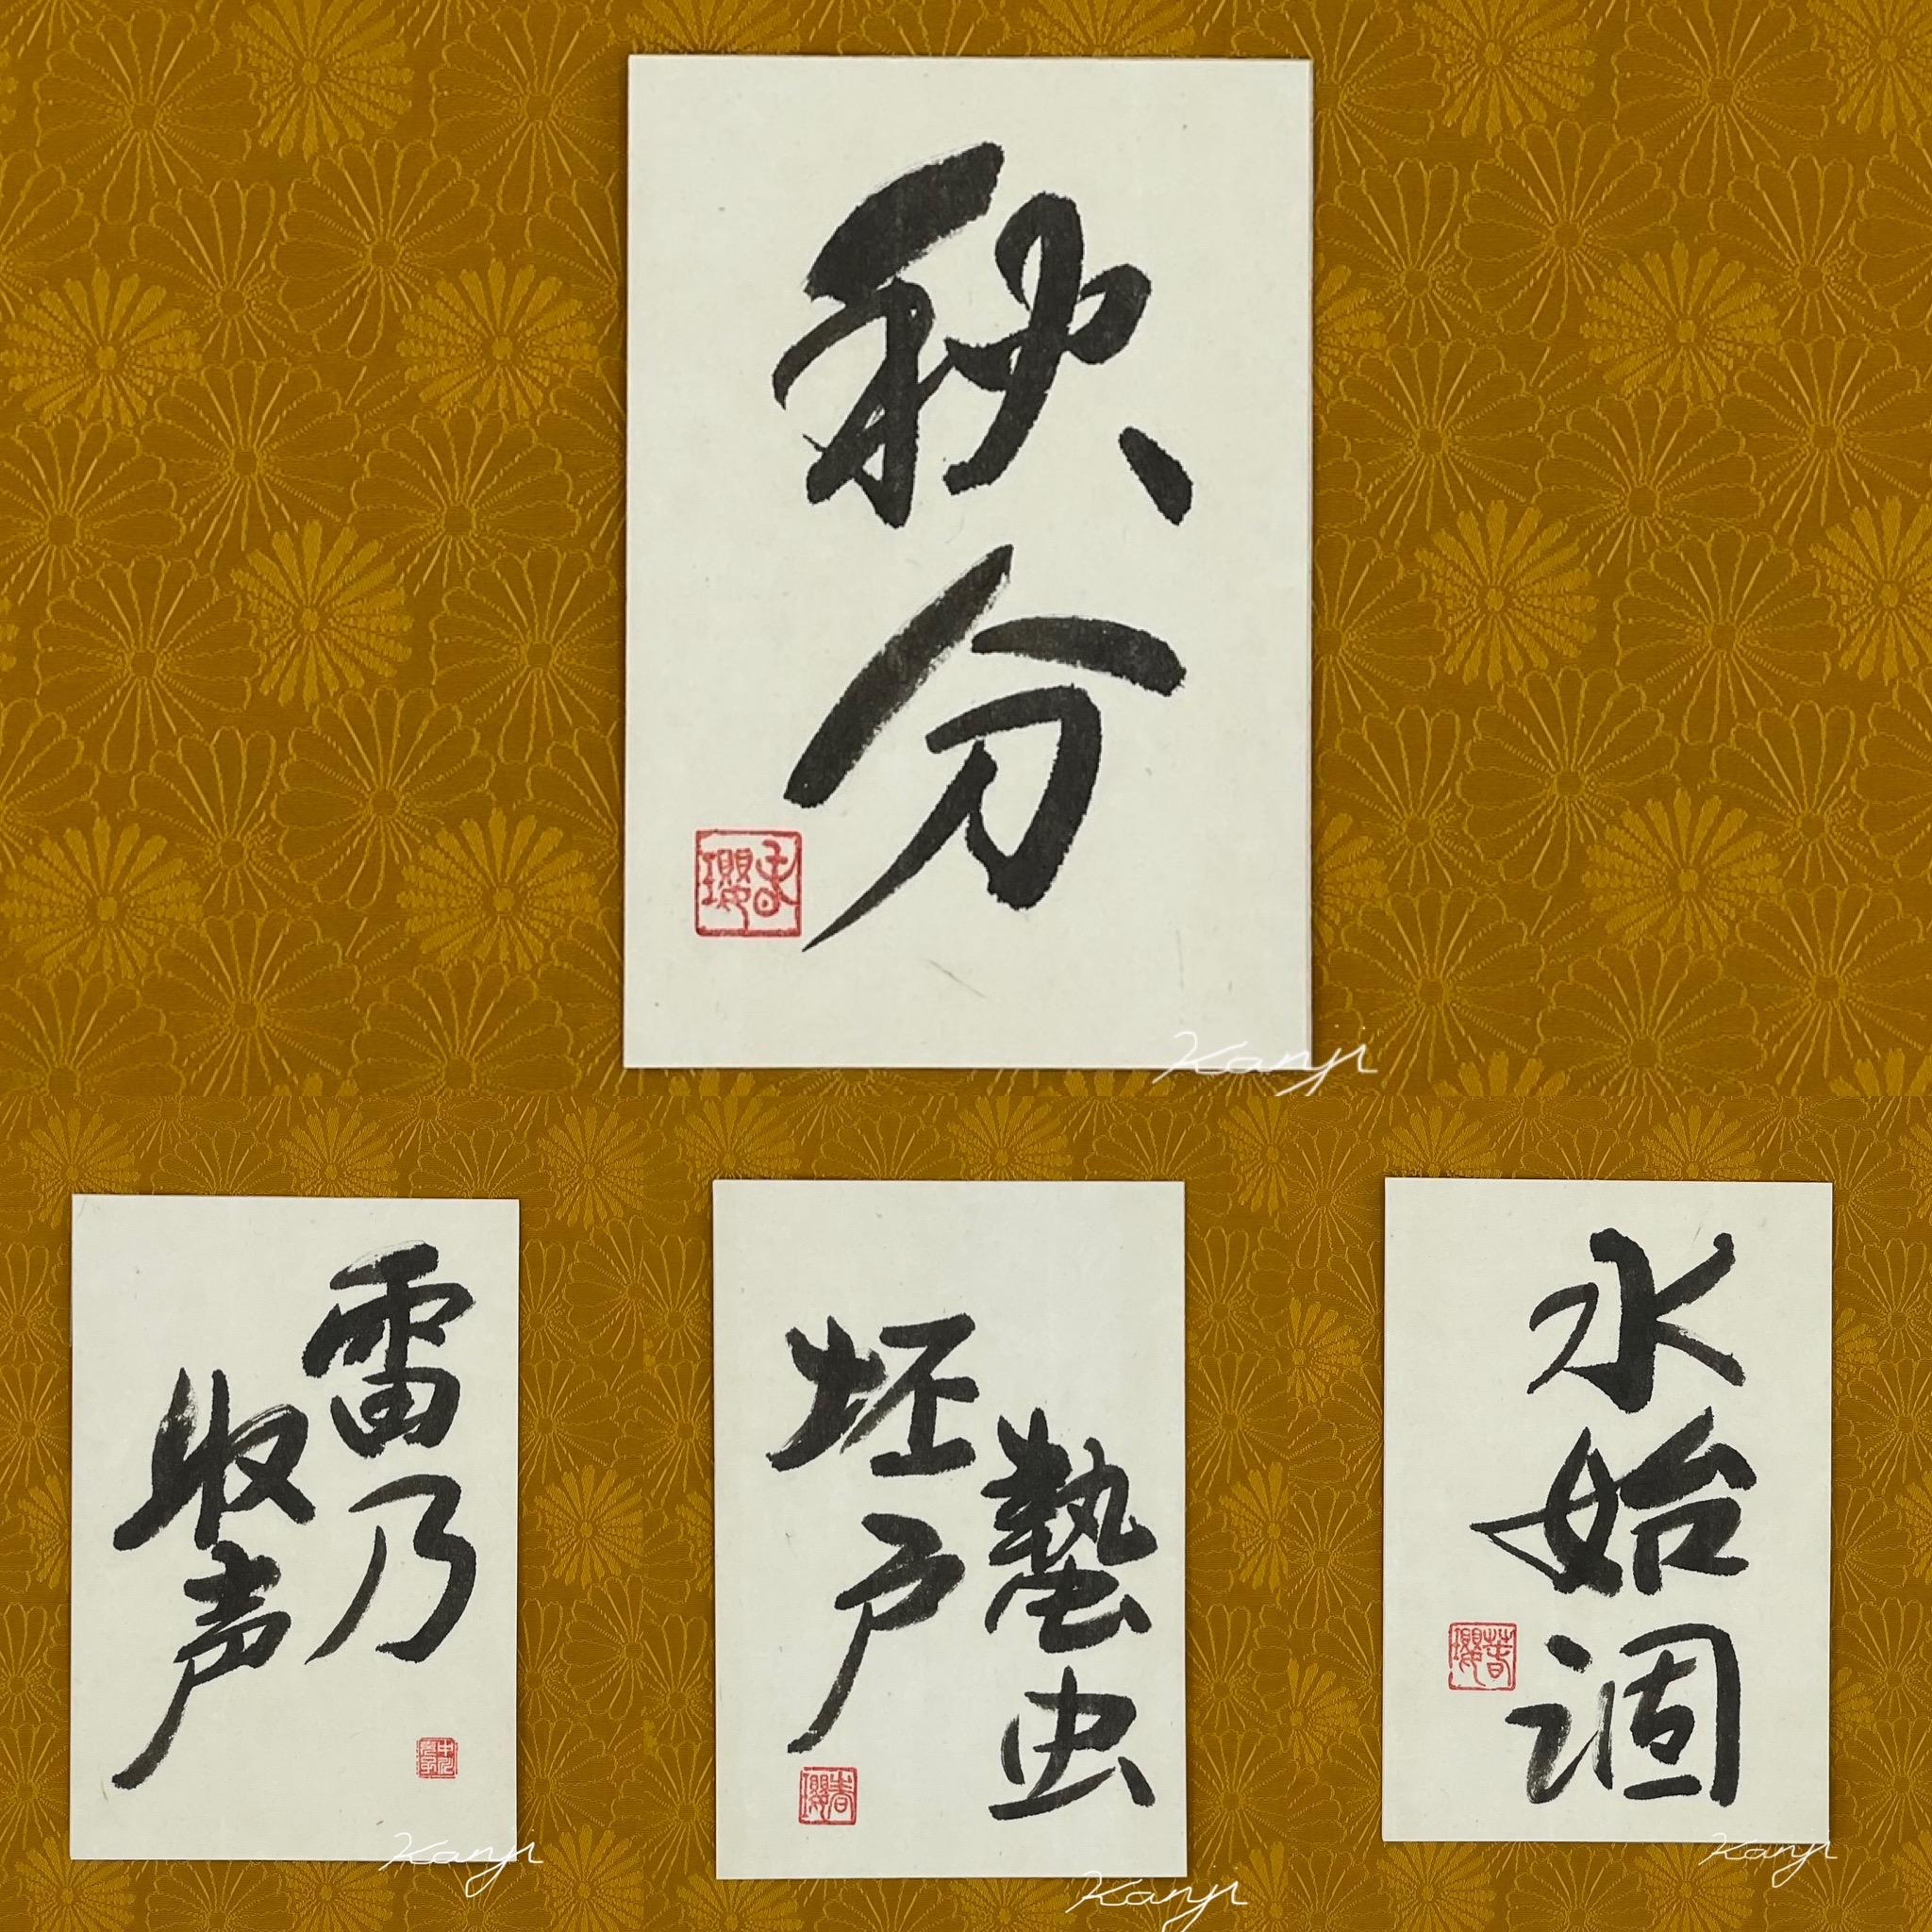 秋分
Kanji
雷乃
收声
Kanji
蟄虫
坯戸
Kanji
水始涸
Kanji